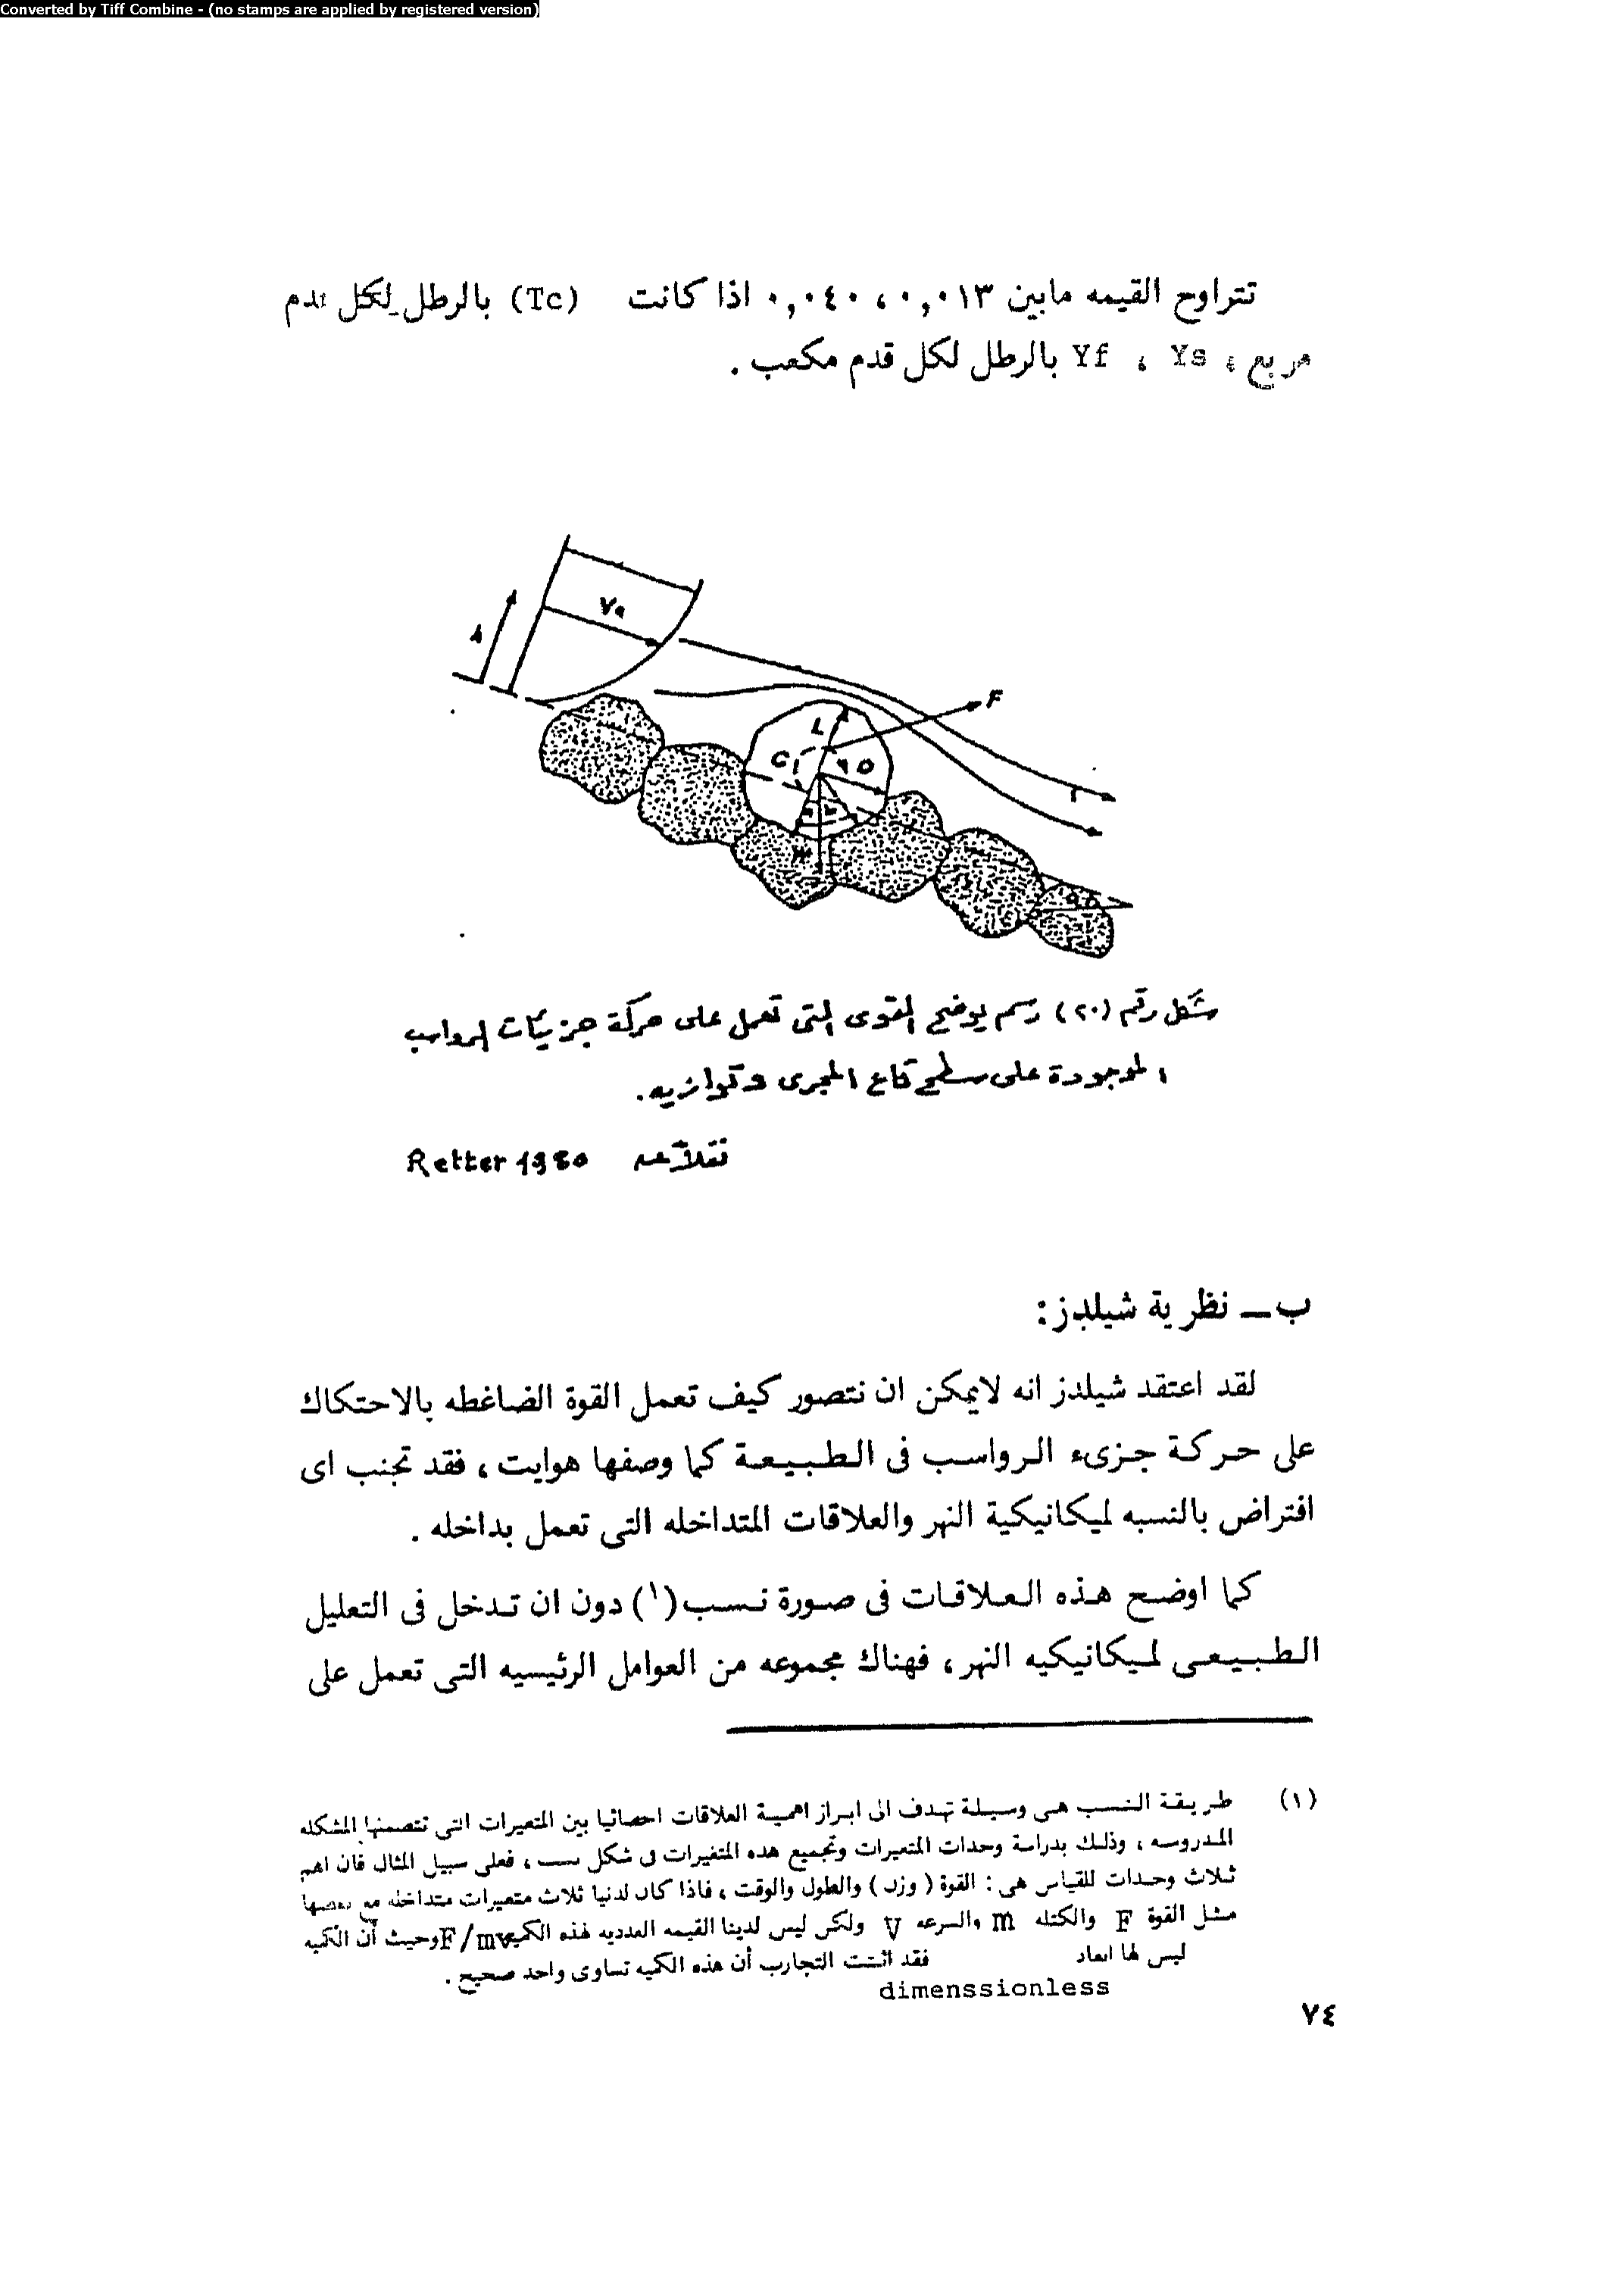 Converted by Tiff Combine - (no stamps are applied by registered version)
تتراوح القيمه مابين ٠,٠١٣ ، ٠,٠٤٠ اذا كانت (Tc) بالرطل لكل قدم
مربع ، Yf ، Ys بالرطل لكل قدم مكعب .
Va
F
L
C
D
شكل رقم (٢٠) رسم يوضح القوى التى تعمل على حركة جزيئات الرواسب
الموجودة على سطح قاع المجرى وتوازيه.
نقلاً عن Retter 1980
ب ــ نظرية شيلدز:
لقد اعتقد شيلدز انه لايمكن ان نتصور كيف تعمل القوة الضاغطه بالاحتكاك
على حركة جزىء الرواسب فى الطبيعة كما وصفها هوايت ، فقد تجنب اى
افتراض بالنسبه لميكانيكية النهر والعلاقات المتداخله التى تعمل بداخله .
كما اوضح هذه العلاقات فى صورة نسب(١) دون ان تدخل فى التعليل
الطبيعى لميكانيكيه النهر ، فهناك مجموعه من العوامل الرئيسيه التى تعمل على
(١) طريقة النسب هى وسيلة تهدف الى ابراز اهمية العلاقات احصائيا بين المتغيرات التى تتضمنها المشكله
المدروسه ، وذلك بدراسة وحدات المتغيرات وتجميع هذه المتغيرات فى شكل نسب ، فعلى سبيل المثال فان اهم
ثلاث وحدات للقياس هى : القوة ( وزن ) والطول والوقت ، فاذا كان لدنيا ثلاث متغيرات متداخله مع بعضها
مثل القوة F والكتله m والسرعه V ولكن ليس لدينا القيمه العدديه لهذه الكميه F/mv وحيث أن الكميه
ليس لها ابعاد dimenssionless فقد اثبتت التجارب أن هذه الكميه تساوى واحد صحيح .
٧٤